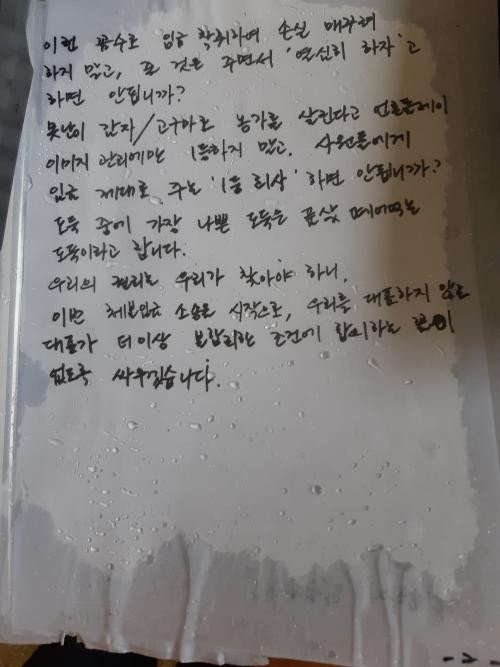 이런 꼼수로 임금 착취하여 손실 매꾸려
하지 말고, 줄 것은 주면서 '열심히 하자'고
하면 안됩니까?
못난이 감자/고구마로 농가를 살린다고 언론플레이
이미지 관리에만 1등하지 말고, 사원들에게
임금 제대로 주는 '1등 회사' 하면 안됩니까?
도둑 중에 가장 나쁜 도둑은 품삯 떼어먹는
도둑이라고 합니다.
우리의 권리는 우리가 찾아야 하니,
이번 체불임금 소송을 시작으로, 우리를 대표하지 않는
대표가 더이상 불합리한 조건에 합의하는 일이
없도록 싸우겠습니다.
-2-